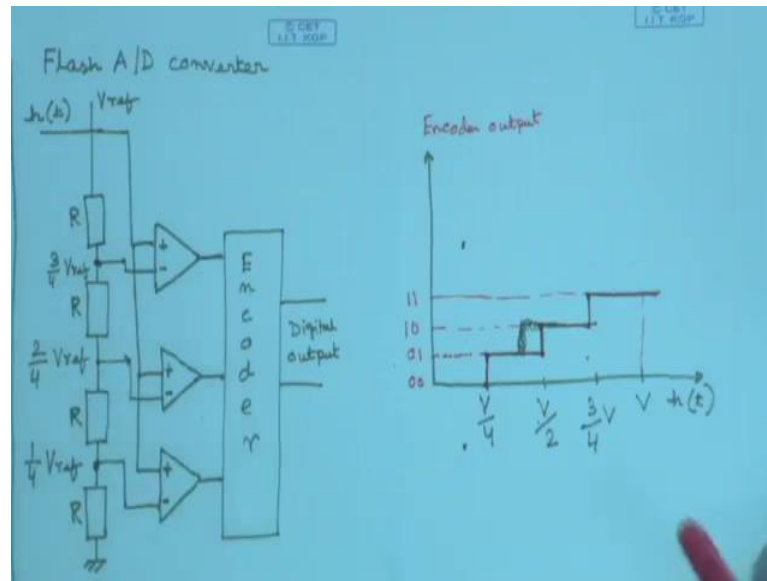 © CET
I.I.T. KGP
Flash A/D converter
h(t)
Vref
R
3/4 Vref
R
2/4 Vref
R
1/4 Vref
R
+
-
+
-
+
-
Encoder
Digital
output
Encoder output
11
10
01
00
V/4
V/2
3/4 V
V
h(t)
© CET
I.I.T. KGP